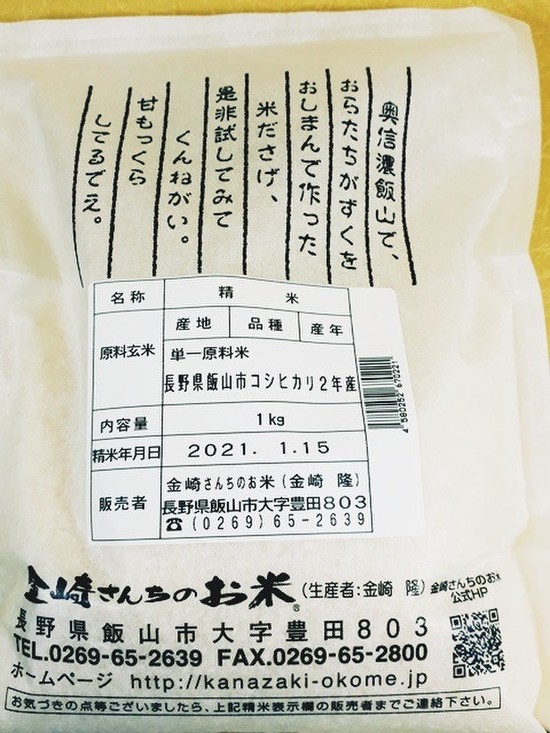 奥信濃飯山で、
おらたちがずくを
おしまんで作った
米ださげ、
是非試してみて
くんねがい。
甘もっくら
してるでえ。
名称 精米
原料玄米 産地 品種 産年
単一原料米
長野県飯山市コシヒカリ2年産
内容量 1kg
精米年月日 2021. 1.15
販売者 金崎さんちのお米(金崎 隆)
長野県飯山市大字豊田803
☎(0269)65-2639
4 580252 670221
金崎さんちのお米® (生産者:金崎 隆)
金崎さんちのお米
公式HP
長野県飯山市大字豊田803
TEL.0269-65-2639 FAX.0269-65-2800
ホームページ http://kanazaki-okome.jp
お気づきの点等ございましたら、上記精米表示欄の販売者までご連絡下さい。